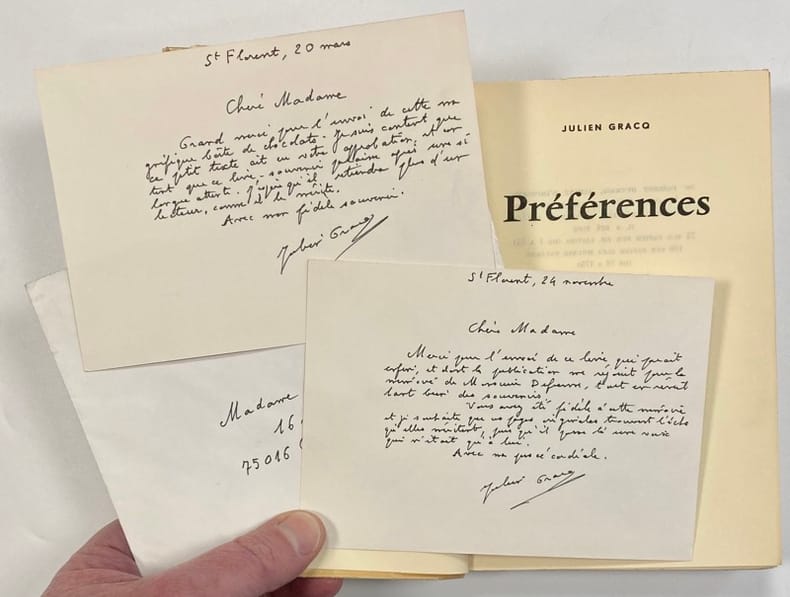 St Florent, 20 mars
Chère Madame
Grand merci pour l'envoi de cette ma
gnifique boîte de chocolats. Je suis content que
ce petit texte ait eu votre approbation, et
tent que ce livre-souvenir paraisse après une si
longue attente. J'espère qu'il retiendra plus d'un
lecteur, comme il le mérite.
Avec mon fidèle souvenir.
Julien Gracq
JULIEN GRACQ
Préférences
St Florent, 24 novembre
Chère Madame
Merci pour l'envoi de ce livre, qui paraît
enfin, et dont la publication me réjouit pour la
mémoire de Monsieur, tout en
tant des souvenirs.
Vous avez été fidèle à cette mémoire
et je souhaite que ces pages trouvent l'écho
qu'elles méritent, puisqu'il y une voix
qui n'était qu'à lui.
Avec ma pensée cordiale.
Julien Gracq
Madame
16
75016